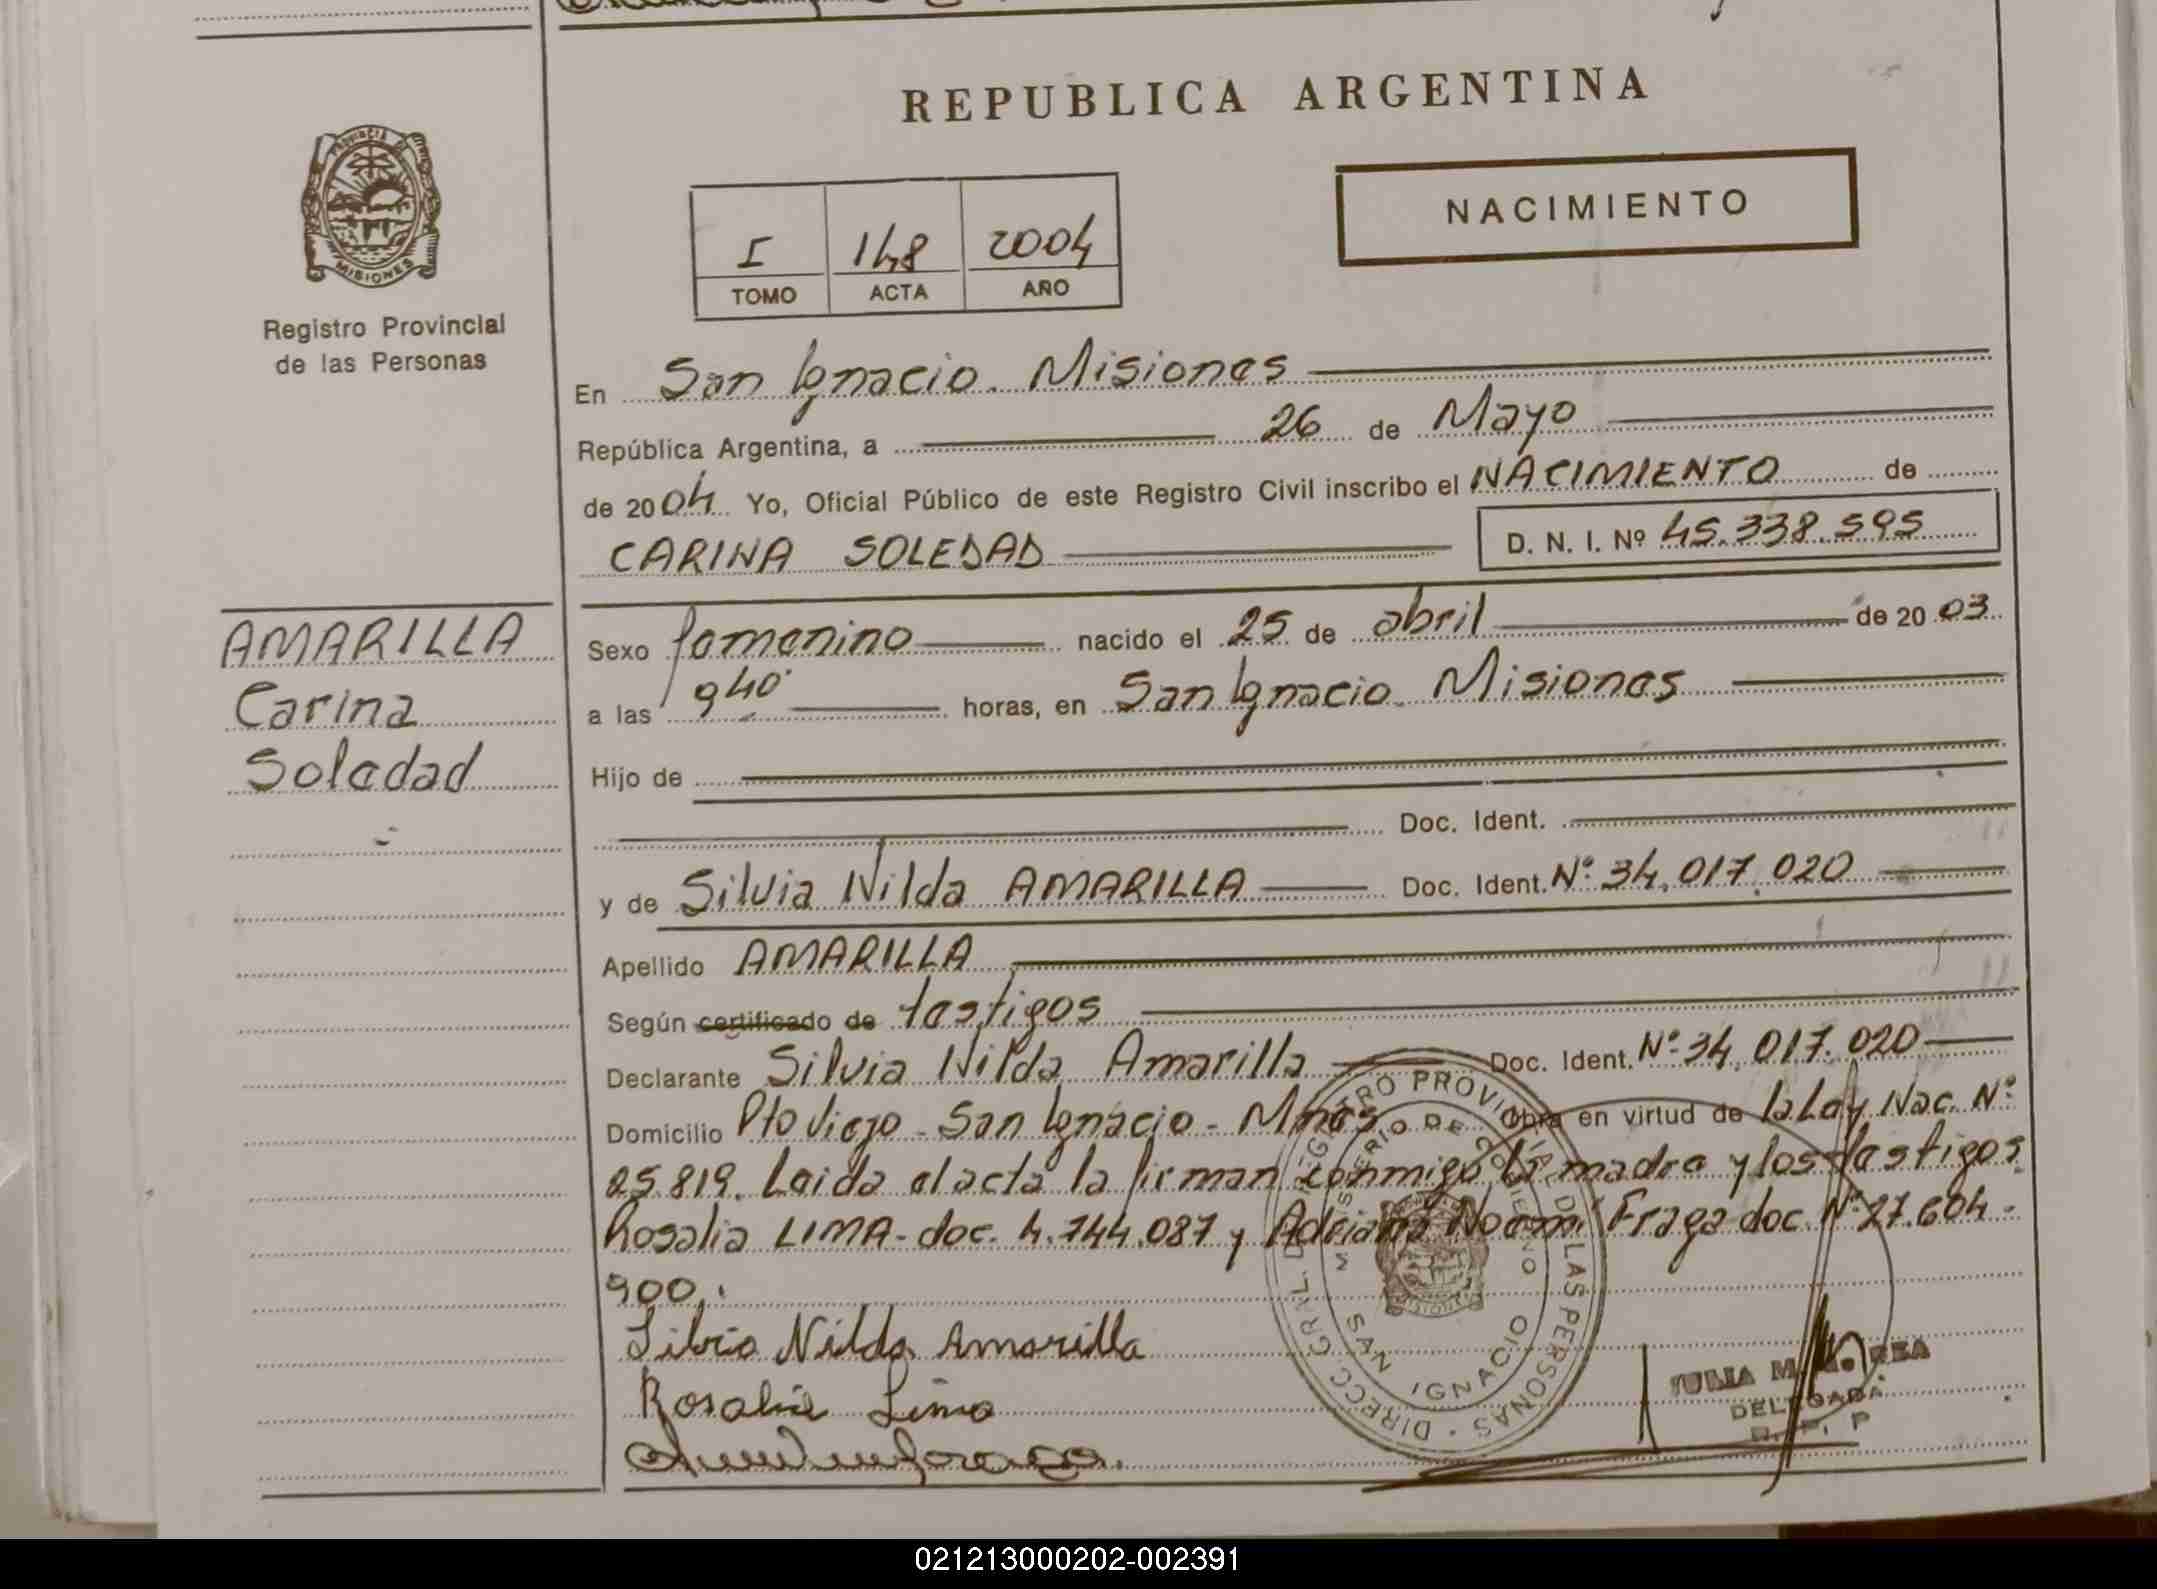 REPUBLICA ARGENTINA
PROVINCIA DE
MISIONES
Registro Provincial
de las Personas
NACIMIENTO
I 148 2004
TOMO ACTA AÑO
En San Ignacio. Misiones
República Argentina, a 26 de Mayo
de 2004 Yo, Oficial Público de este Registro Civil inscribo el NACIMIENTO de
CARINA SOLEDAD D. N. I. Nº 45.338.595
AMARILLA
Carina
Soledad
Sexo femenino nacido el 25 de abril de 2003
a las 940 horas, en San Ignacio. Misiones
Hijo de
Doc. Ident.
y de Silvia Nilda AMARILLA Doc. Ident. Nº 34.017.020
Apellido AMARILLA
Según certificado de testigos
Declarante Silvia Nilda Amarilla Doc. Ident. Nº 34.017.020
Domicilio Pto Viejo - San Ignacio - Mnes Obra en virtud de la Ley Nac. Nº
25.819. Leida el acta la firman conmigo la madre y los testigos
Rosalia LIMA - doc. 4.744.087 y Adriana Noemi Fraga doc. Nº 27.604.
900.
Silvia Nilda Amarilla
Rosalia Lima
DIRECC. GRAL. DE REGISTRO PROVINCIAL DE LAS PERSONAS
MINISTERIO DE GOBIERNO
SAN IGNACIO
JULIA M.
DELEGADA
021213000202-002391